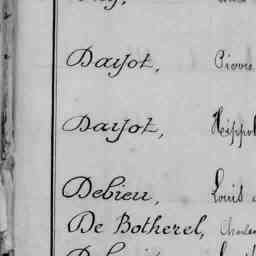 Dayot, Pierre
Dayot, Hippol
Debieu, Louis
De Botherel, Charles